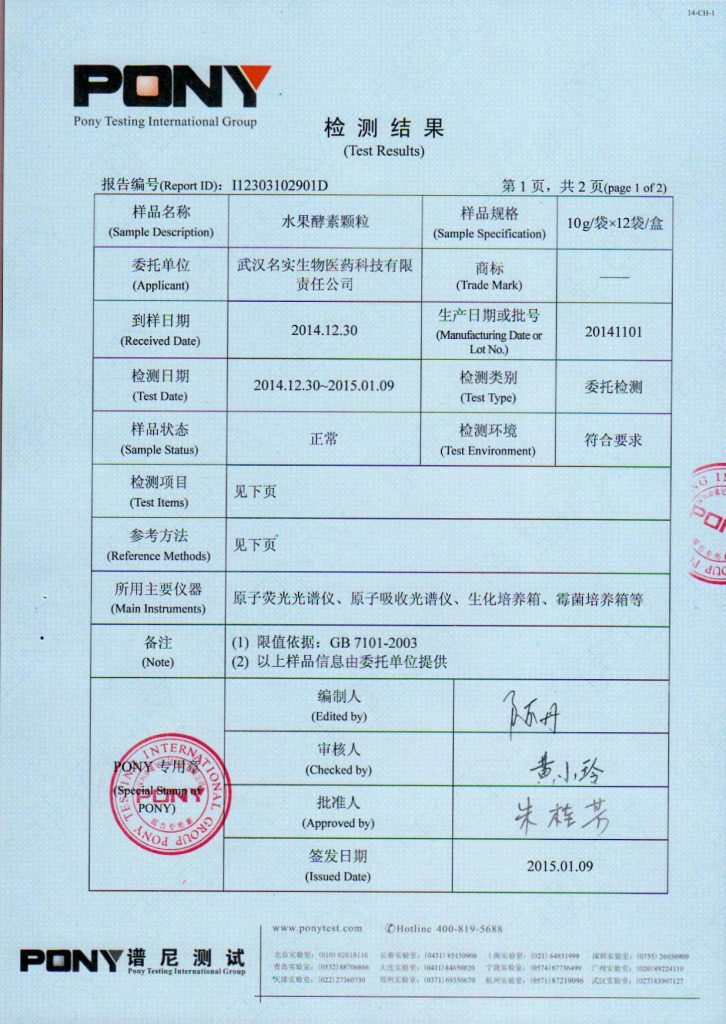 14-CH-1
PONY
Pony Testing International Group
检测结果
(Test Results)
报告编号(Report ID): I12303102901D
第 1 页，共 2 页(page 1 of 2)
样品名称
(Sample Description)
水果酵素颗粒
样品规格
(Sample Specification)
10g/袋×12袋/盒
委托单位
(Applicant)
武汉名实生物医药科技有限
责任公司
商标
(Trade Mark)
——
到样日期
(Received Date)
2014.12.30
生产日期或批号
(Manufacturing Date or
Lot No.)
20141101
检测日期
(Test Date)
2014.12.30~2015.01.09
检测类别
(Test Type)
委托检测
样品状态
(Sample Status)
正常
检测环境
(Test Environment)
符合要求
检测项目
(Test Items)
见下页
参考方法
(Reference Methods)
见下页
所用主要仪器
(Main Instruments)
原子荧光光谱仪、原子吸收光谱仪、生化培养箱、霉菌培养箱等
备注
(Note)
(1) 限值依据：GB 7101-2003
(2) 以上样品信息由委托单位提供
PONY 专用章
(Special Stamp of
PONY)
PONY TESTING INTERNATIONAL GROUP
PONY
报告专用章
编制人
(Edited by)
审核人
(Checked by)
黄小玲
批准人
(Approved by)
朱桂芳
签发日期
(Issued Date)
2015.01.09
PONY 谱尼测试
Pony Testing International Group
www.ponytest.com
Hotline 400-819-5688
北京实验室: (010) 82618116 长春实验室: (0431) 85150908 上海实验室: (021) 64851999 深圳实验室: (0755) 26050909
青岛实验室: (0532) 88706866 大连实验室: (0411) 84650820 宁波实验室: (0574) 87736499 广州实验室: (020) 89224310
天津实验室: (022) 27360730 郑州实验室: (0371) 69350670 杭州实验室: (0571) 87219096 武汉实验室: (027) 83997127